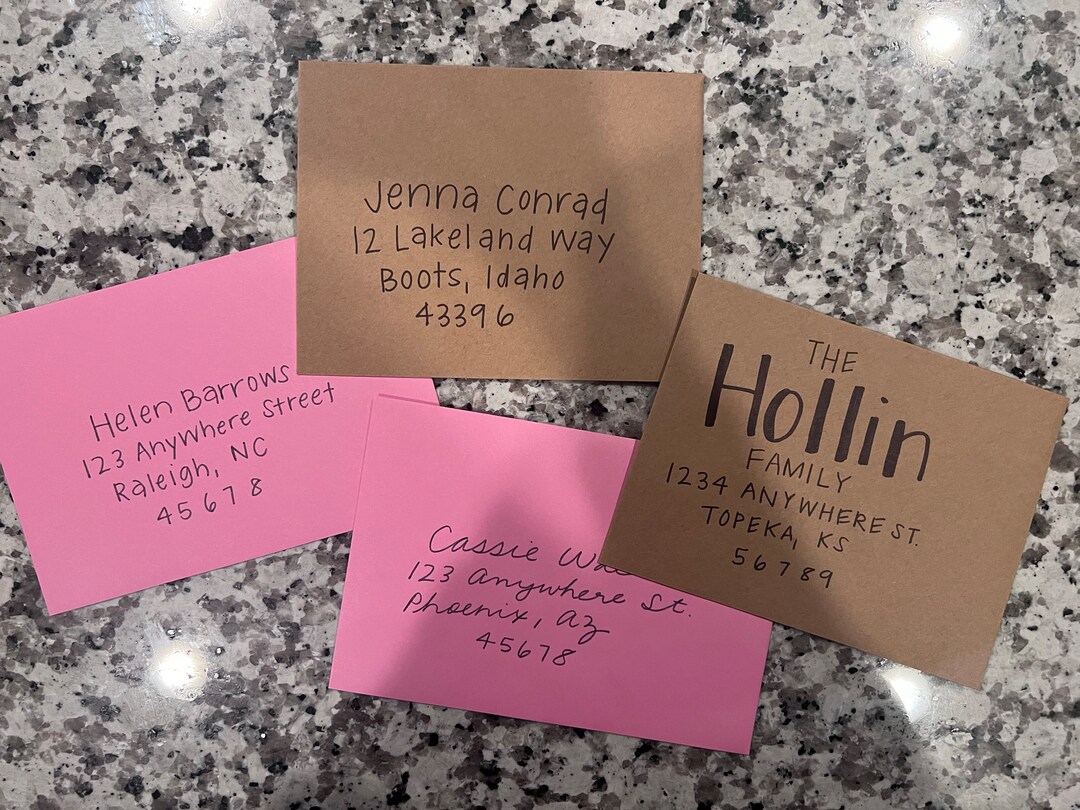 Jenna Conrad
12 Lakeland Way
Boots, Idaho
43396
Helen Barrows
123 Anywhere Street
Raleigh, NC
45678
THE
Hollin
FAMILY
1234 ANYWHERE ST.
TOPEKA, KS
56789
Cassie
123 Anywhere St.
Phoenix, AZ
45678